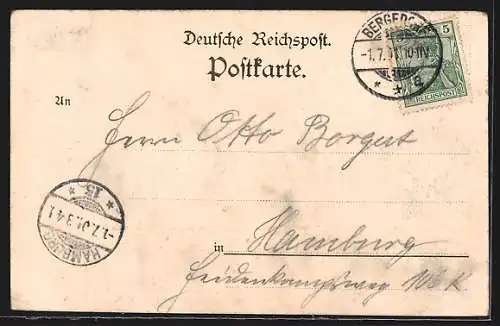 Deutsche Reichspost.
Postkarte.
BERGEDORF
-1.7.01.10-11V.
* * c
5
REICHSPOST
An
Herrn Otto Borgert
in Hamburg
Heidenkampsweg
* 15 *
-1.7.01.3-4 N
HAMBURG